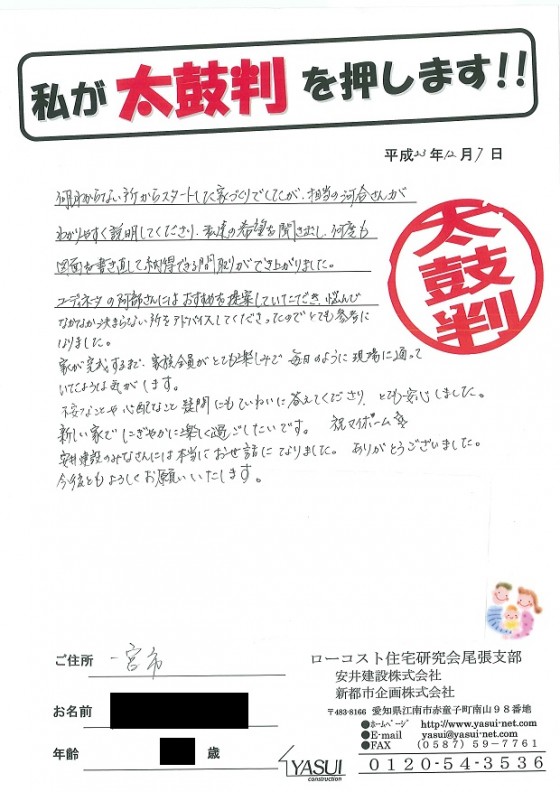 私が太鼓判を押します!!
平成23年12月7日
何もわからない所からスタートした家づくりでしたが、担当の河合さんが
わかりやすく説明してくださり、私達の希望を聞き出し、何度も
図面を書き直して納得できる間取りができ上がりました。
コーディネータの阿部さんにはおすすめを提案していただき、悩んで
なかなか決まらない所をアドバイスしてくださったのでとても参考に
なりました。
家が完成するまで、家族全員がとても楽しみで毎日のように現場に通って
いたような気がします。
不安なことや心配なこと疑問にもていねいに答えてくださり、とても安心しました。
新しい家でにぎやかに楽しく過ごしたいです。 祝マイホーム☆
安井建設のみなさんには本当にお世話になりました。ありがとうございました。
今後ともよろしくお願いいたします。
太鼓判
ご住所 一宮市
お名前
年齢 歳
YASUI
construction
ローコスト住宅研究会尾張支部
安井建設株式会社
新都市企画株式会社
〒483-8166 愛知県江南市赤童子町南山98番地
●ホームページ http://www.yasui-net.com
●E-mail yasui@yasui-net.com
●FAX (0587)59-7761
0120-54-3536